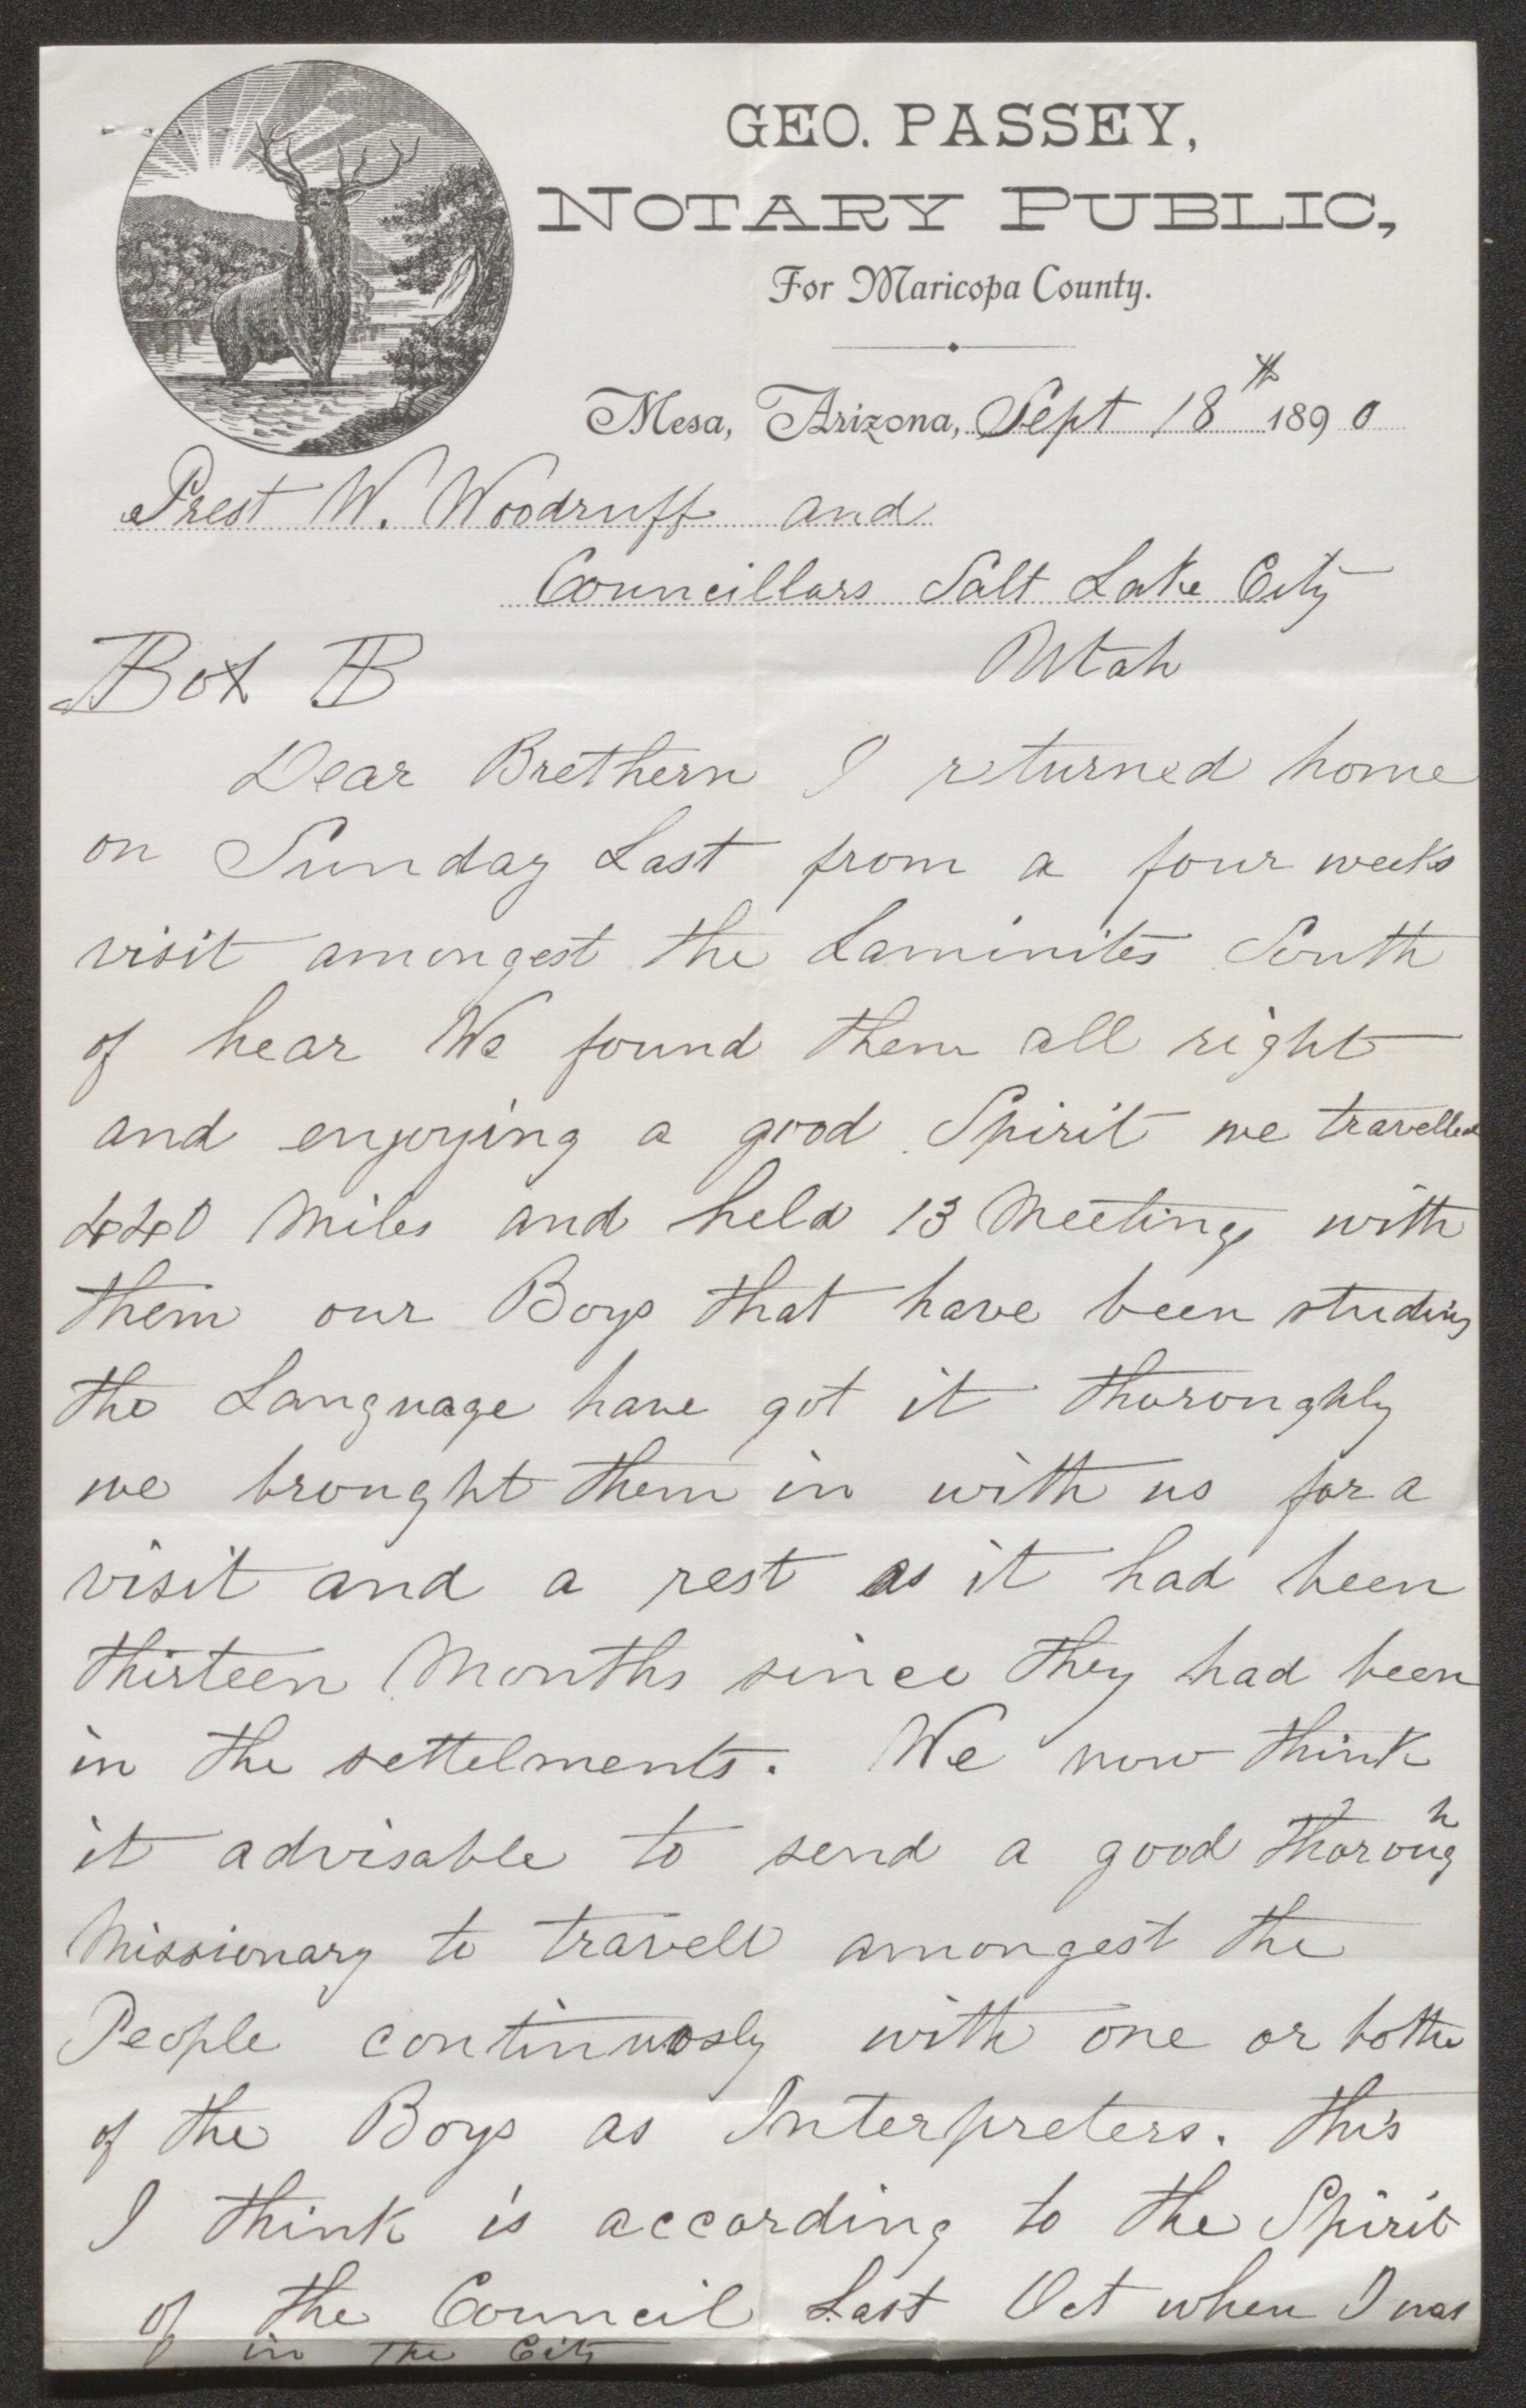 GEO. PASSEY,
NOTARY PUBLIC,
For Maricopa County.
Mesa, Arizona, Sept 18th 1890
Prest W. Woodruff and
Councillars Salt Lake City
Utah
Box B
Dear Brethern I returned home
on Sunday Last from a four weeks
visit amongest the Laminites South
of hear We found them all right
and enjoying a good Spirit we travelled
440 Miles and held 13 Meetings with
them our Boys that have been studing
the Language have got it thoroughly
we brought them in with us for a
visit and a rest as it had been
thirteen Months since they had been
in the settelments. We now think
it advisable to send a good thorough
Missionary to travell amongest the
People continuosly with one or bothe
of the Boys as Interpreters. this
I think is according to the Spirit
of the Council Last Oct when I was
in the City